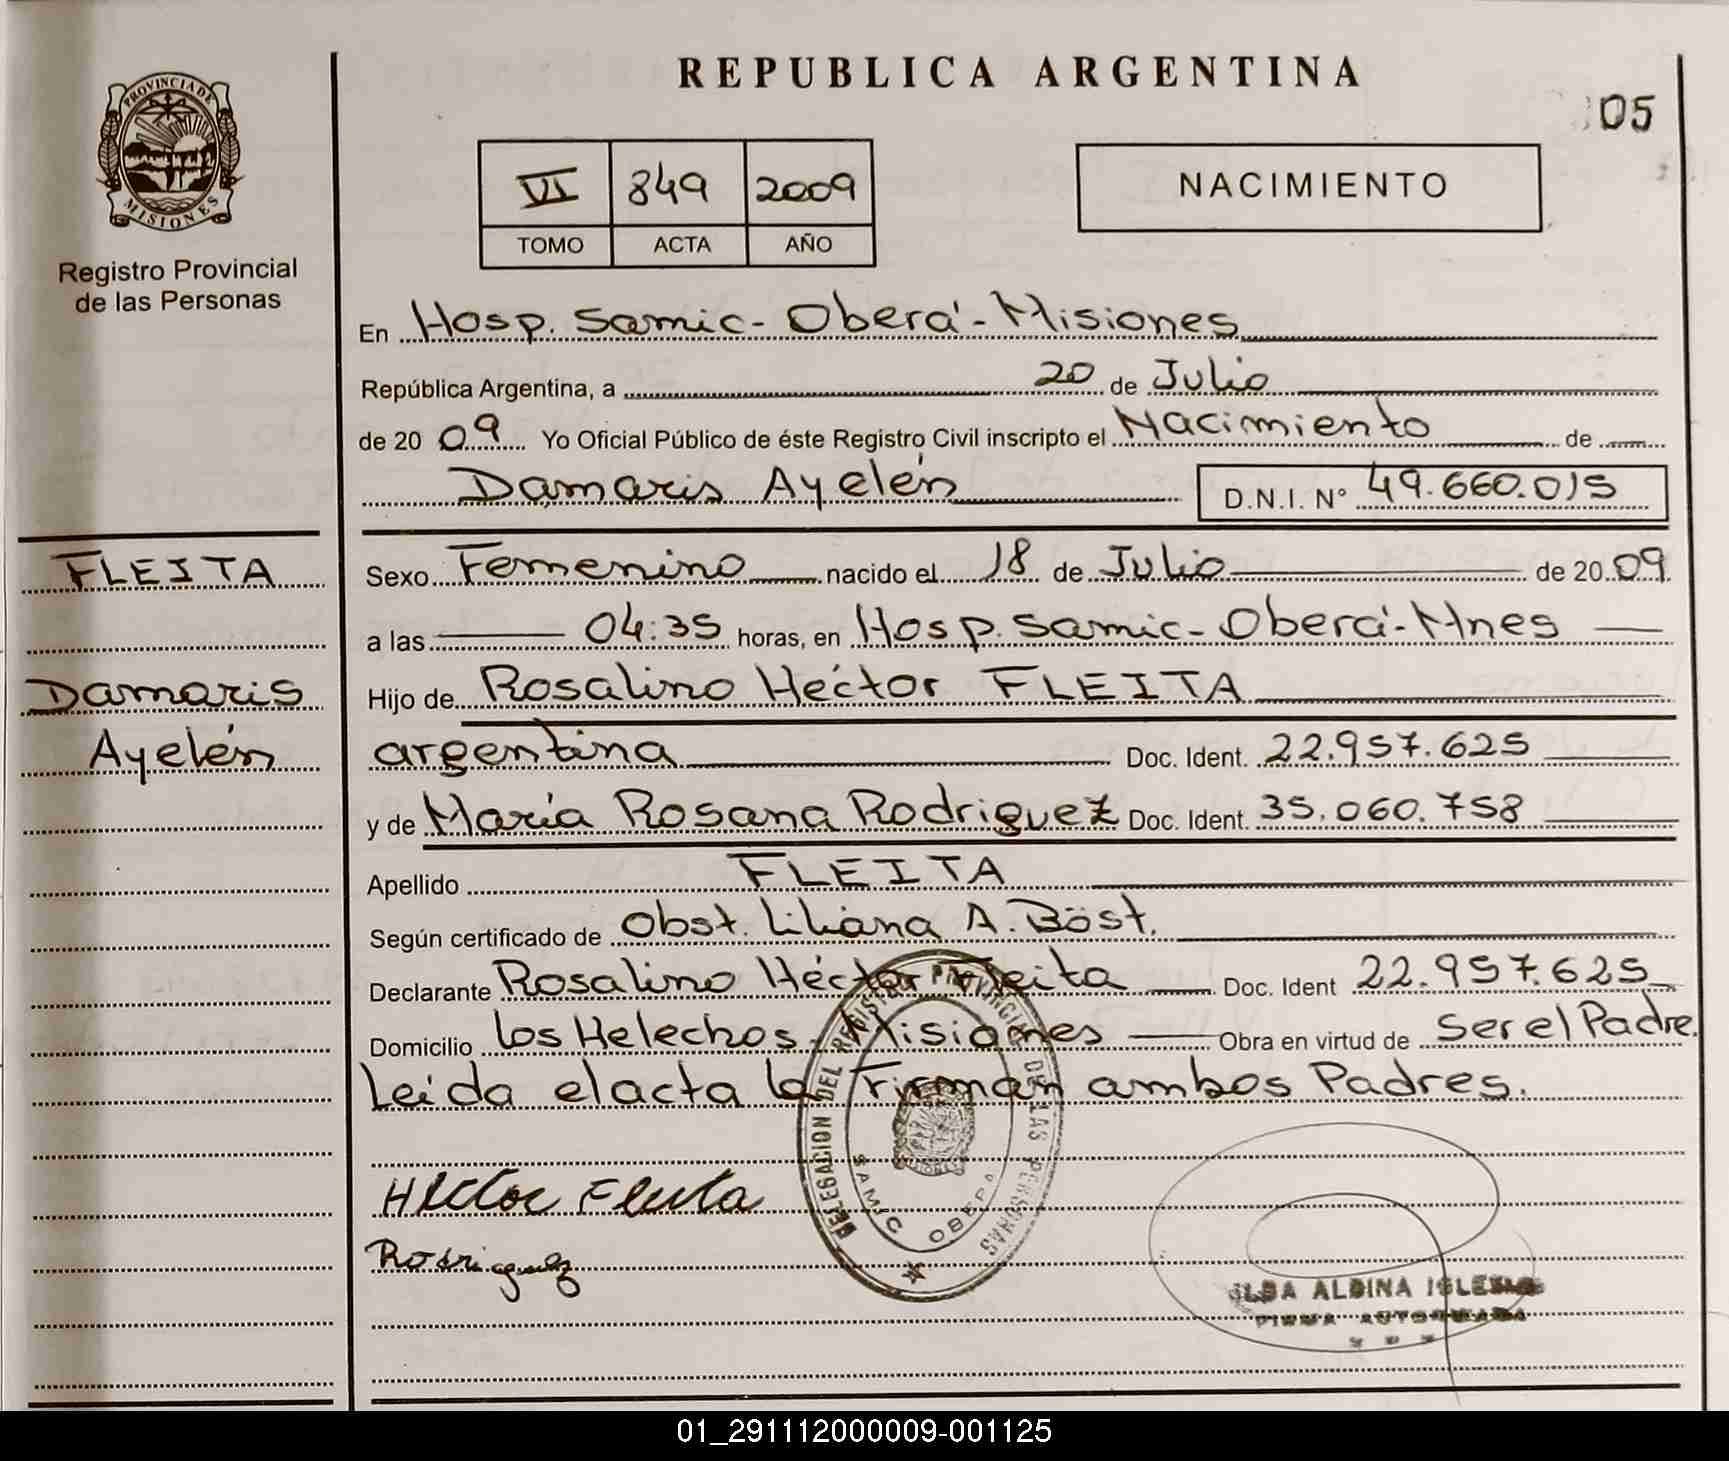 REPUBLICA ARGENTINA
05
PROVINCIA DE
MISIONES
Registro Provincial
de las Personas
VI 849 2009
TOMO ACTA AÑO
NACIMIENTO
En Hosp. Samic - Oberá - Misiones
República Argentina, a 20 de Julio
de 2009 Yo Oficial Público de éste Registro Civil inscripto el Nacimiento de
Damaris Ayelén D.N.I. N° 49.660.015
FLEITA
Damaris
Ayelén
Sexo Femenino nacido el 18 de Julio de 2009
a las 04:35 horas, en Hosp. Samic - Oberá - Mnes
Hijo de Rosalino Héctor FLEITA
argentina Doc. Ident. 22.957.625
y de María Rosana Rodriguez Doc. Ident. 35.060.758
Apellido FLEITA
Según certificado de Obst. Liliana A. Böst.
Declarante Rosalino Héctor Fleita Doc. Ident 22.957.625
Domicilio Los Helechos - Misiones Obra en virtud de Ser el Padre.
Leida el acta la Firman ambos Padres.
Hector Fleita
Rodriguez
DELEGACION DEL REGISTRO PROVINCIAL DE LAS PERSONAS
SAMIC OBERA
ALBINA IGLESIAS
FIRMA AUTORIZADA
01_291112000009-001125